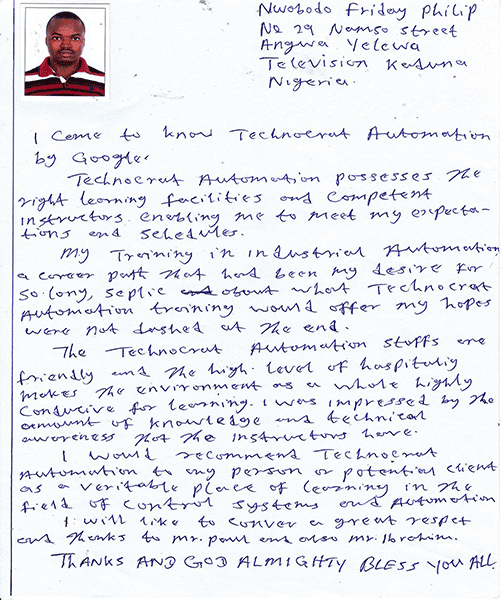 Nwobodo Friday Philip
No 29 Namso Street
Angwa Yelewa
Television Kaduna
Nigeria.
I Come to know Technocrat Automation
by Google.
Technocrat Automation possesses the
right learning facilities and competent
instructors enabling me to meet my expecta-
tions and schedules.
My Training in industrial Automation
a career path that had been my desire for
so long, septic about what Technocrat
Automation training would offer my hopes
were not dashed at the end.
The Technocrat Automation staffs are
friendly and the high level of hospitaliy
makes the environment as a whole highly
Conducive for learning. I was impressed by the
amount of knowledge and technical
awareness that the instructors have.
I would recommend Technocrat
Automation to any person or potential client
as a veritable place of learning in the
field of Control Systems and Automation
I will like to conver a great respet
and thanks to Mr. Paul and also Mr. Ibrahim.
THANKS AND GOD ALMIGHTY BLESS YOU ALL.